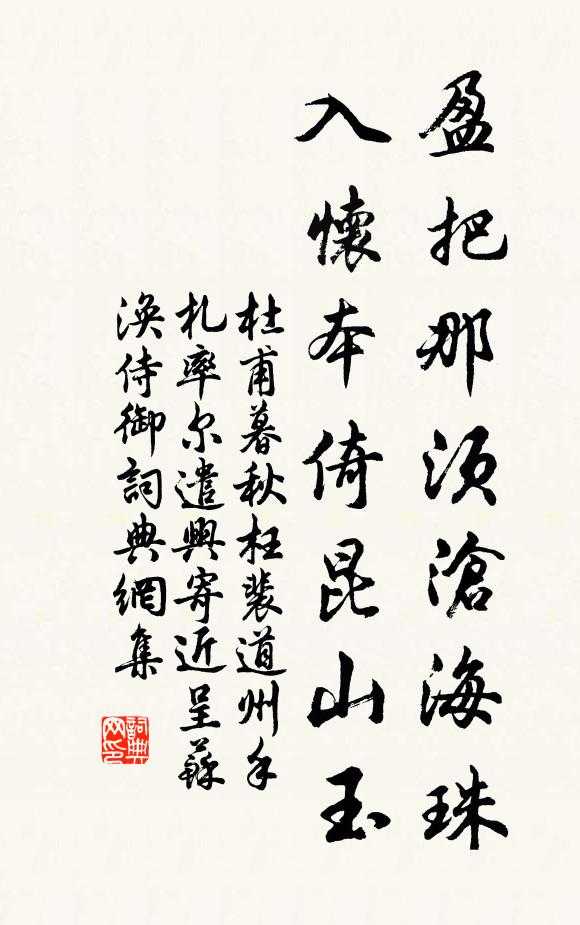 盈把那須滄海珠
入懷本倚昆山玉
杜甫暮秋枉裴道州手
札率尔遣興寄近呈蘇
渙侍御詞典網集
詞典
网印